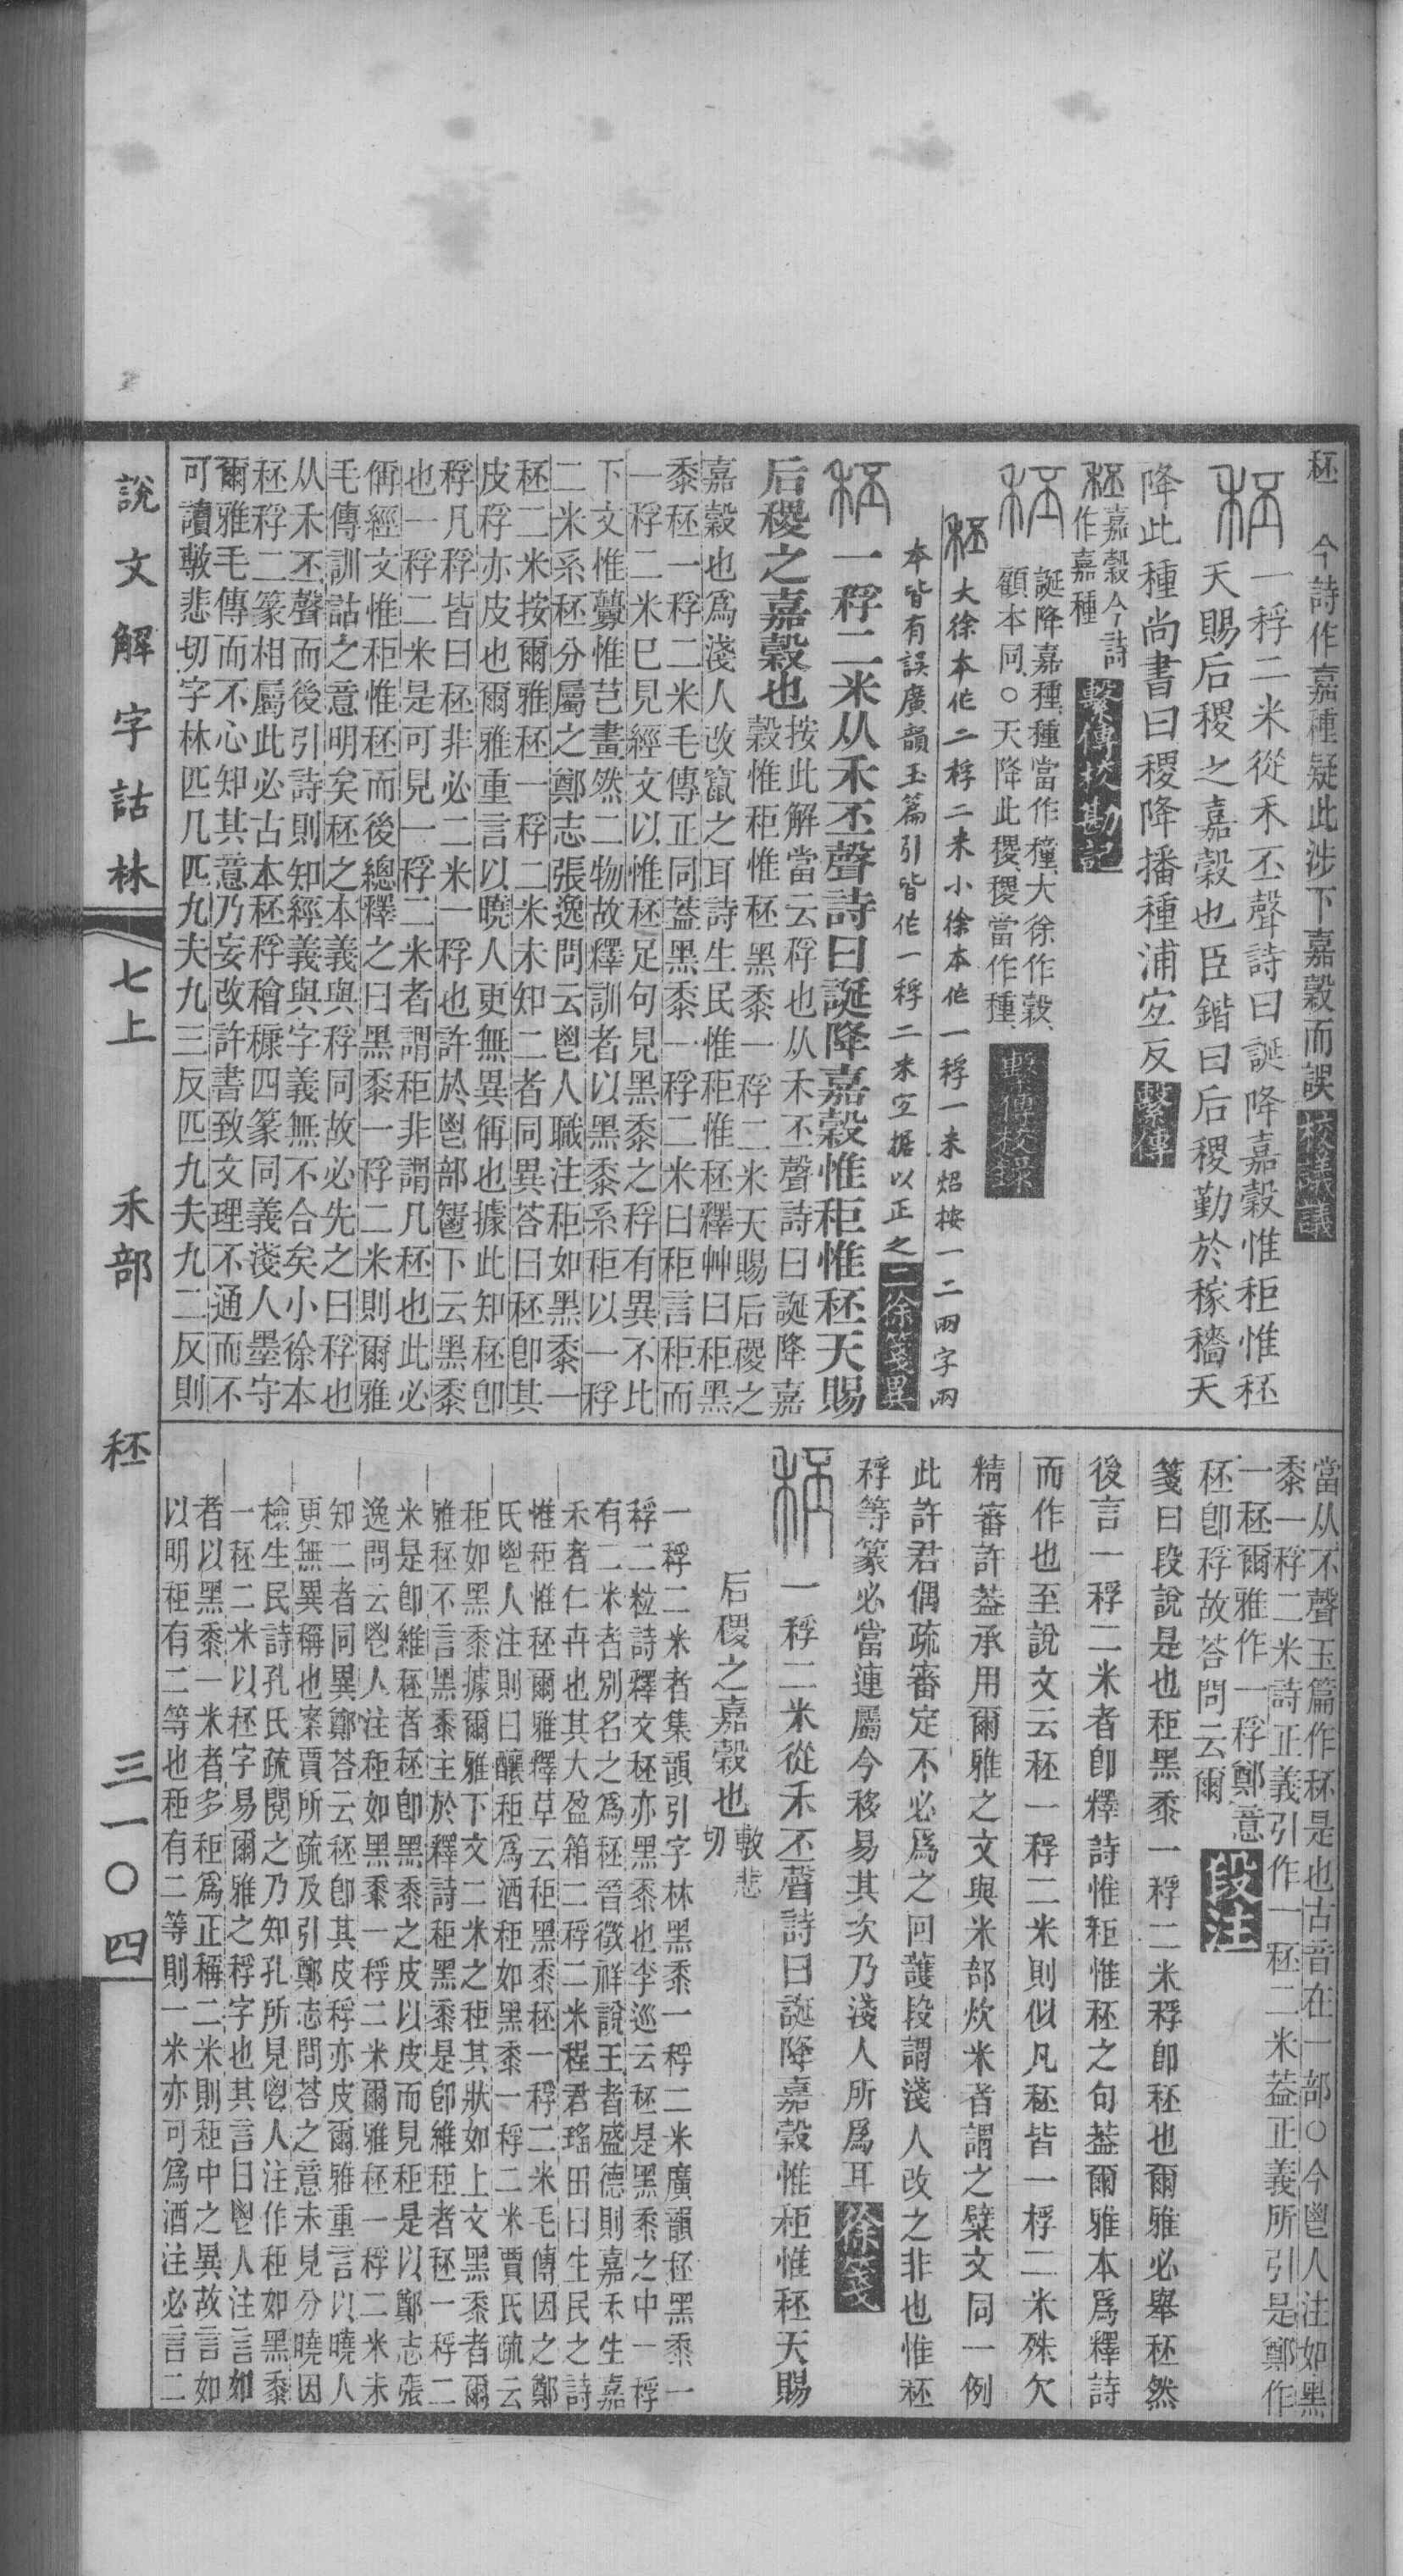 秠　今詩作嘉種疑此涉下嘉穀而誤 校議議
一稃二米從禾丕聲詩曰誕降嘉穀惟秬惟秠
天賜后稷之嘉穀也臣鍇曰后稷勤於稼穡天
降此種尚書曰稷降播種浦宓反 繫傳
秠嘉穀今詩
作嘉種 繫傳校勘記
誕降嘉種種當作穜大徐作穀
顧本同○天降此稷稷當作種 繫傳校錄
秠大徐本作二稃二米小徐本作一稃一米炤按一二兩字兩
本皆有誤廣韻玉篇引皆作一稃二米宜據以正之 二徐箋異
一稃二米从禾丕聲詩曰誕降嘉穀惟秬惟秠天賜
后稷之嘉穀也
按此解當云稃也从禾丕聲詩曰誕降嘉
穀惟秬惟秠黑黍一稃二米天賜后稷之
嘉穀也爲淺人改竄之耳詩生民惟秬惟秠釋艸曰秬黑
黍秠一稃二米毛傳正同葢黑黍一稃二米曰秬言秬而
一稃二米巳見經文以惟秠足句見黑黍之稃有異不比
下文惟虋惟芑畫然二物故釋訓者以黑黍系秬以一稃
二米系秠分屬之鄭志張逸問云鬯人職注秬如黑黍一
秠二米按爾雅秠一稃二米未知二者同異荅曰秠卽其
皮稃亦皮也爾雅重言以曉人更無異偁也據此知秠卽
稃凡稃皆曰秠非必二米一稃也許於鬯部𩰪下云黑黍
也一稃二米是可見一稃二米者謂秬非謂凡秠也此必
偁經文惟秬惟秠而後總釋之曰黑黍一稃二米則爾雅
毛傳訓詁之意明矣秠之本義與稃同故必先之曰稃也
从禾丕聲而後引詩則知經義與字義無不合矣小徐本
秠稃二篆相屬此必古本秠稃穭穅四篆同義淺人墨守
爾雅毛傳而不心知其意乃妄改許書致文理不通而不
可讀敷悲切字林匹几匹九夫九三反匹九夫九二反則
當从不聲玉篇作秠是也古音在一部○今鬯人注如黑
黍一稃二米詩正義引作一秠二米葢正義所引是鄭作
一秠爾雅作一稃鄭意
秠卽稃故荅問云爾 段注
箋曰段說是也秬黑黍一稃二米稃卽秠也爾雅必舉秠然
後言一稃二米者卽釋詩惟秬惟秠之句葢爾雅本爲釋詩
而作也至說文云秠一稃二米則似凡秠皆一稃二米殊欠
精審許葢承用爾雅之文與米部炊米者謂之糪文同一例
此許君偶疏審定不必爲之回護段謂淺人改之非也惟秠
稃等篆必當連屬今移易其次乃淺人所爲耳 徐箋
一稃二米從禾丕聲詩曰誕降嘉穀惟秬惟秠天賜
后稷之嘉穀也敷悲切
一稃二米者集韻引字林黑黍一稃二米廣韻秠黑黍一
稃二粒詩釋文秠亦黑黍也李巡云秠是黑黍之中一稃
有二米者別名之爲秠晉徵祥說王者盛德則嘉禾生嘉
禾者仁卉也其大盈箱二稃二米程君瑤田曰生民之詩
惟秬惟秠爾雅釋草云秬黑黍秠一稃二米毛傳因之鄭
氏鬯人注則曰釀秬爲酒秬如黑黍一稃二米賈氏疏云
秬如黑黍據爾雅下文二米之秬其狀如上文黑黍者爾
雅秠不言黑黍主於釋詩秬黑黍是卽維秬者秠一稃二
米是卽維秠者秠卽黑黍之皮以皮而見秬是以鄭志張
逸問云鬯人注秬如黑黍一稃二米爾雅秠一稃二米未
知二者同異鄭荅云秠卽其皮稃亦皮爾雅重言以曉人
更無異稱也案賈所疏及引鄭志問荅之意未見分曉因
檢生民詩孔氏疏閱之乃知孔所見鬯人注作秬如黑黍
一秠二米以秠字易爾雅之稃字也其言曰鬯人注言如
者以黑黍一米者多秬爲正稱二米則秬中之異故言如
以明秬有二等也秬有二等則一米亦可爲酒注必言二
說文解字詁林　七上　禾部　秠　三一〇四